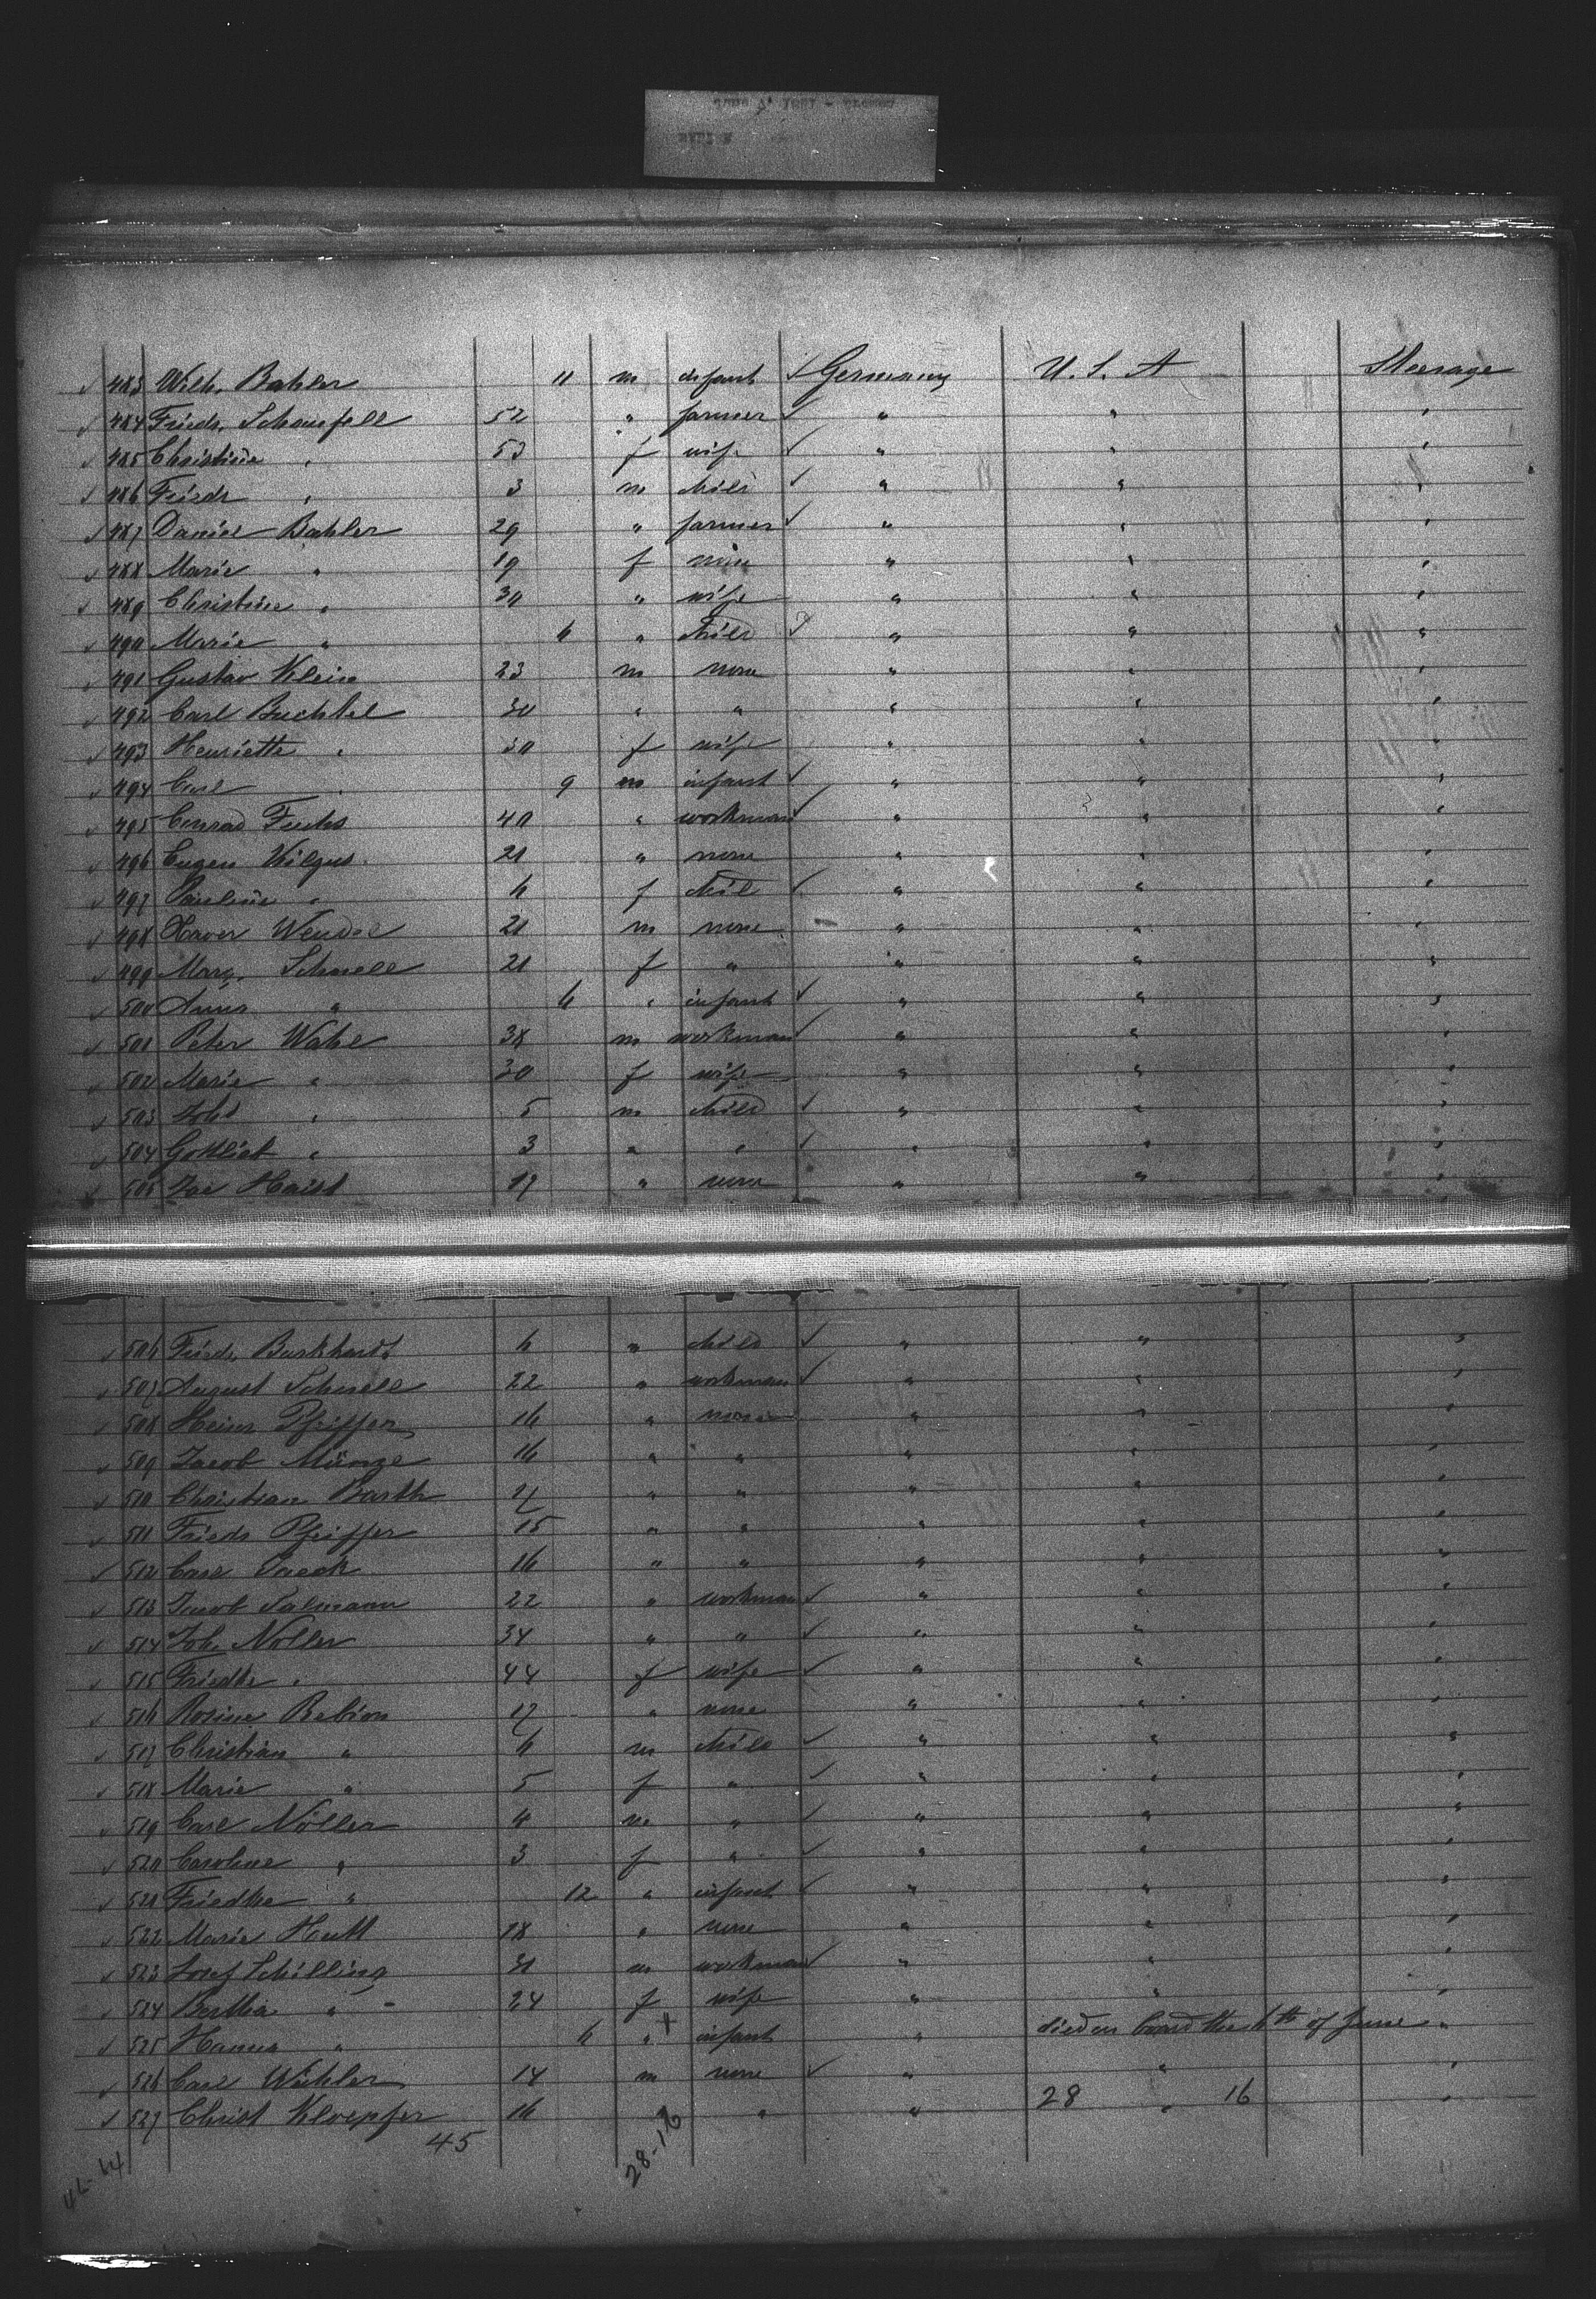 483 Wilh. Bahler 11 m infant Germany U. S. A Steerage
484 Friedr. Schaufell 52 " farmer " " "
485 Christine " 53 f wife " " "
486 Friedr " 3 m child " " "
487 Daniel Bahler 29 " farmer " " "
488 Marie " 19 f none " " "
489 Christine " 30 " wife " " "
490 Marie " 6 " child " " "
491 Gustav Klein 23 m none " " "
492 Carl Buchtel 30 " " " " "
493 Henriette " 30 f wife " " "
494 Carl " 9 m infant " " "
495 Conrad Fuchs 40 " workman " " "
496 Eugen Kilgus 21 " none " " "
497 Pauline " 6 f chil " " "
498 Xaver Wendel 21 m none " " "
499 Marg. Schnell 21 f " " " "
500 Anna " 6 " infant " " "
501 Peter Wahl 38 m workman " " "
502 Marie " 30 f wife " " "
503 Joh " 5 m child " " "
504 Gottlieb " 3 " " " " "
505 Haist 17 " none " " "
506 Friedr. Burkhardt 6 " child " " "
507 August Schnell 22 " workman " " "
508 Heinr Pfeiffer 16 " none " " "
509 Jacob Münze 16 " " " " "
510 Christian Barth " " " " "
511 Friedr Pfeiffer 15 " " " " "
512 Carl 16 " " " " "
513 Jacob Salmann 22 " workman " " "
514 Joh. Noller 34 " " " " "
515 Friedke " 44 f wife " " "
516 Rosine Rebion 17 " none " " "
517 Christian " 6 m child " " "
518 Marie " 5 f " " " "
519 Carl Nöller 4 m " " " "
520 Caroline " 3 f " " " "
521 Friedke " 12 " infant " " "
522 Marie Hutt 18 " none " " "
523 Josef Schilling 31 m workman " " "
524 Bertha " 24 f wife " " "
525 Hanna " 6 " + infant " died on board the 6th of June "
526 Carl Wähler 14 m none " " "
527 Christ Kloepfer 16 " " 28 " 16 "
45 28-16